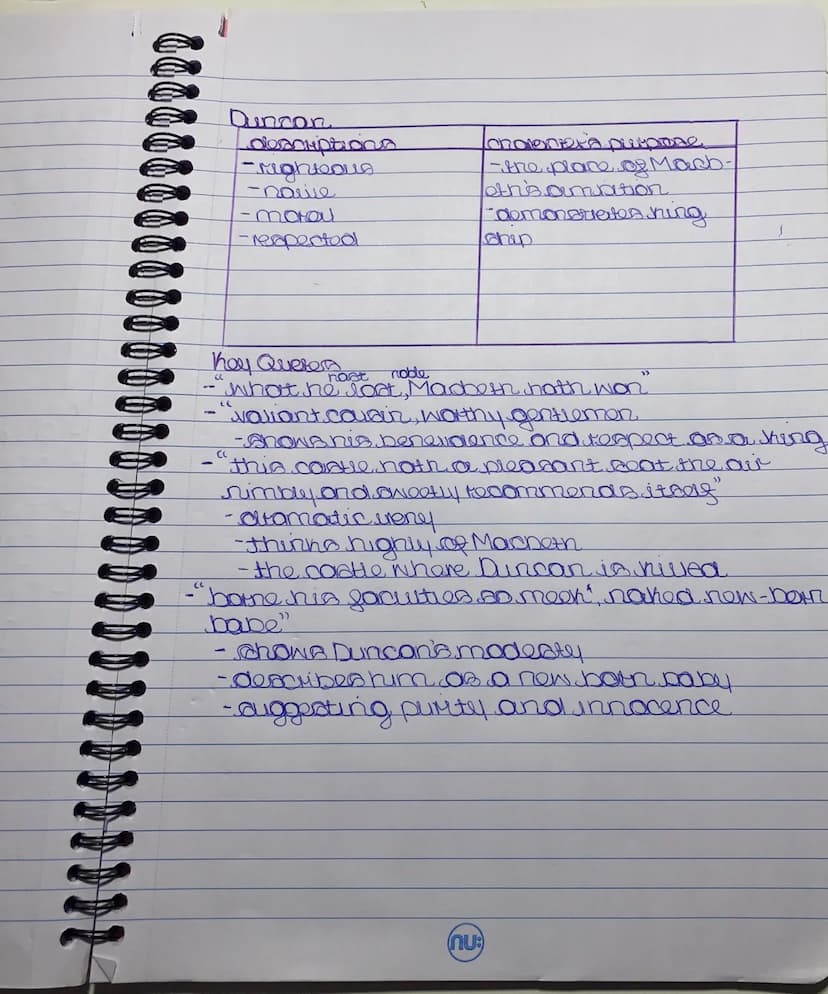 Duncan
descriptions character's purpose
-righteous -the place of Macb-
-naive eth's ambition
-moral -demonstrates king
-respected ship
Key Quotes
hast noble
-"what he lost, Macbeth hath won"
-"valiant cousin, worthy gentleman
-shows his benevolence and respect as a king
-"this castle hath a pleasant seat the air
nimbly and sweetly recommends itself"
-dramatic irony
-thinks highly of Macbeth
-the castle where Duncan is killed
-"borne his faculties so meek", naked new-born
babe"
- shows Duncan's modesty
-describes him as a new born baby
-suggesting purity and innocence
nu: